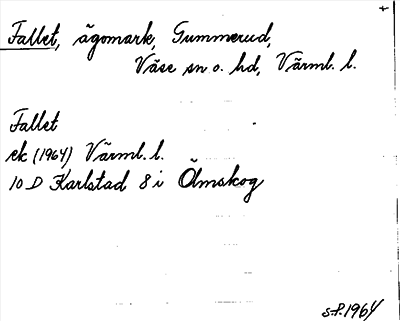 Fallet, ägomark, Gummerud,
Väse sn o. hd, Värml. l.
Fallet
ek (1964) Värml. l.
10 D Karlstad 8 i Ölmskog
S.P. 1964